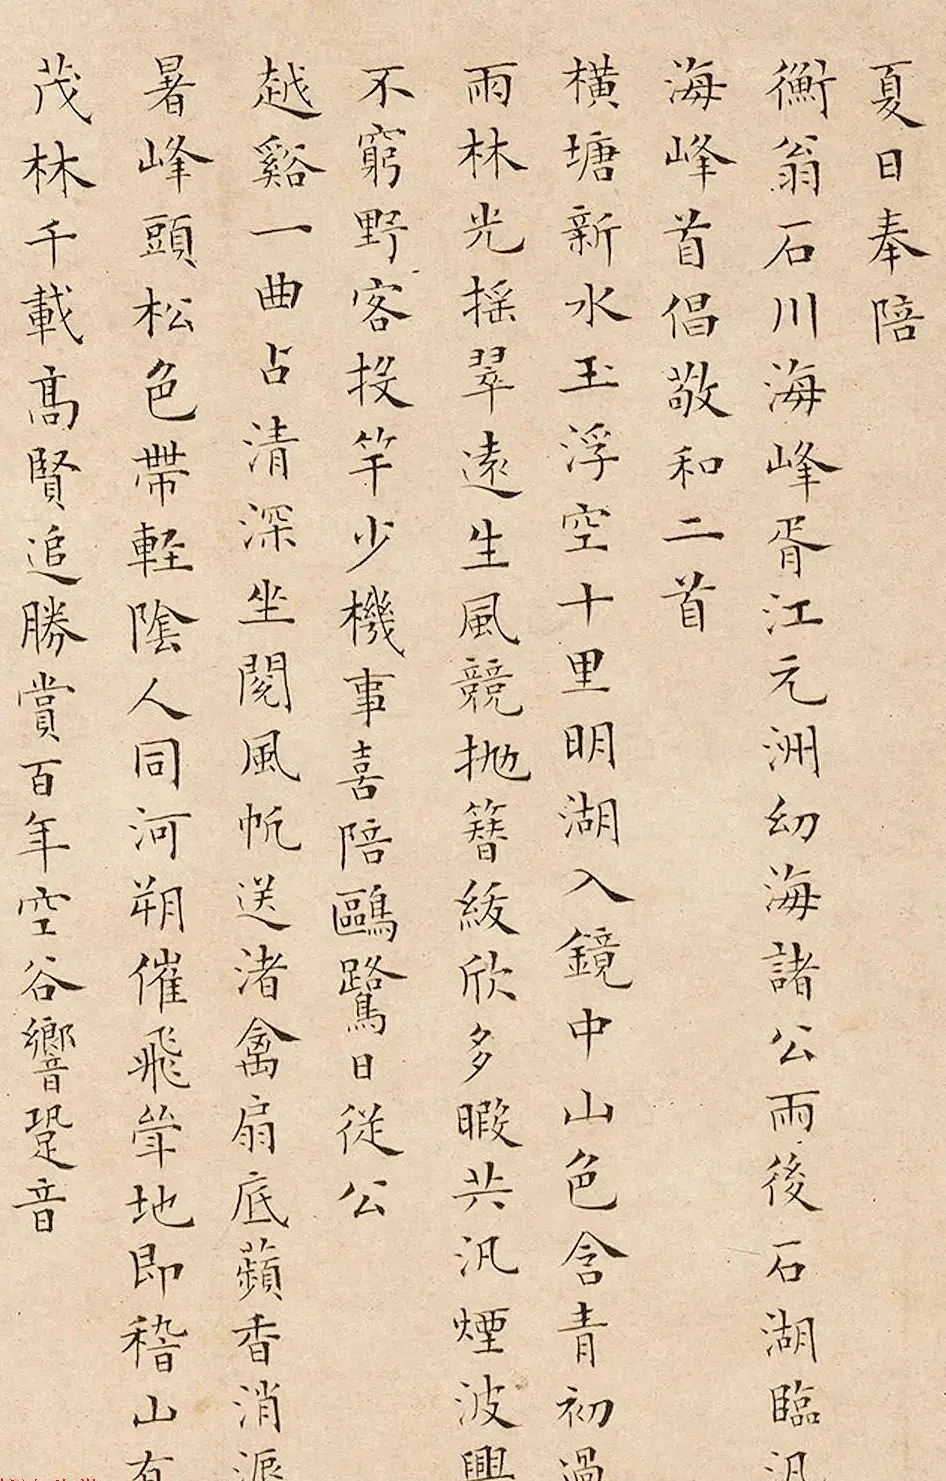 夏日奉陪
衡翁石川海峰胥江元洲幼海諸公雨後石湖臨汎
海峰首倡敬和二首
橫塘新水玉浮空十里明湖入鏡中山色含青初過
雨林光摇翠遠生風競抛簪紱欣多暇共汎煙波興
不窮野客投竿少機事喜陪鷗鷺日從公
越谿一曲占清深坐閱風帆送渚禽扇底蘋香消
暑峰頭松色帶輕陰人同河朔催飛斝地即稽山有
茂林千載高賢追勝賞百年空谷響跫音